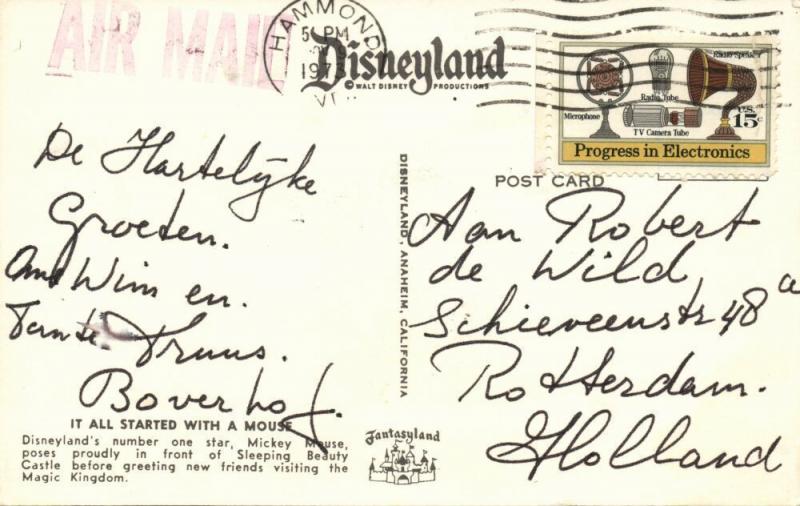 AIR MAIL
HAMMOND
5 PM
1973
Disneyland
© WALT DISNEY PRODUCTIONS
Radio Speaker
Radio Tube
Microphone
TV Camera Tube
U.S.
15c
Progress in Electronics
De Hartelijke
Groeten.
Wim en.
Tante. Truus.
Boverhof.
IT ALL STARTED WITH A MOUSE
Disneyland's number one star, Mickey Mouse,
poses proudly in front of Sleeping Beauty
Castle before greeting new friends visiting the
Magic Kingdom.
DISNEYLAND, ANAHEIM, CALIFORNIA
Fantasyland
POST CARD
Aan Robert
de Wild
Schieveenstr 48 a
Rotterdam.
Holland